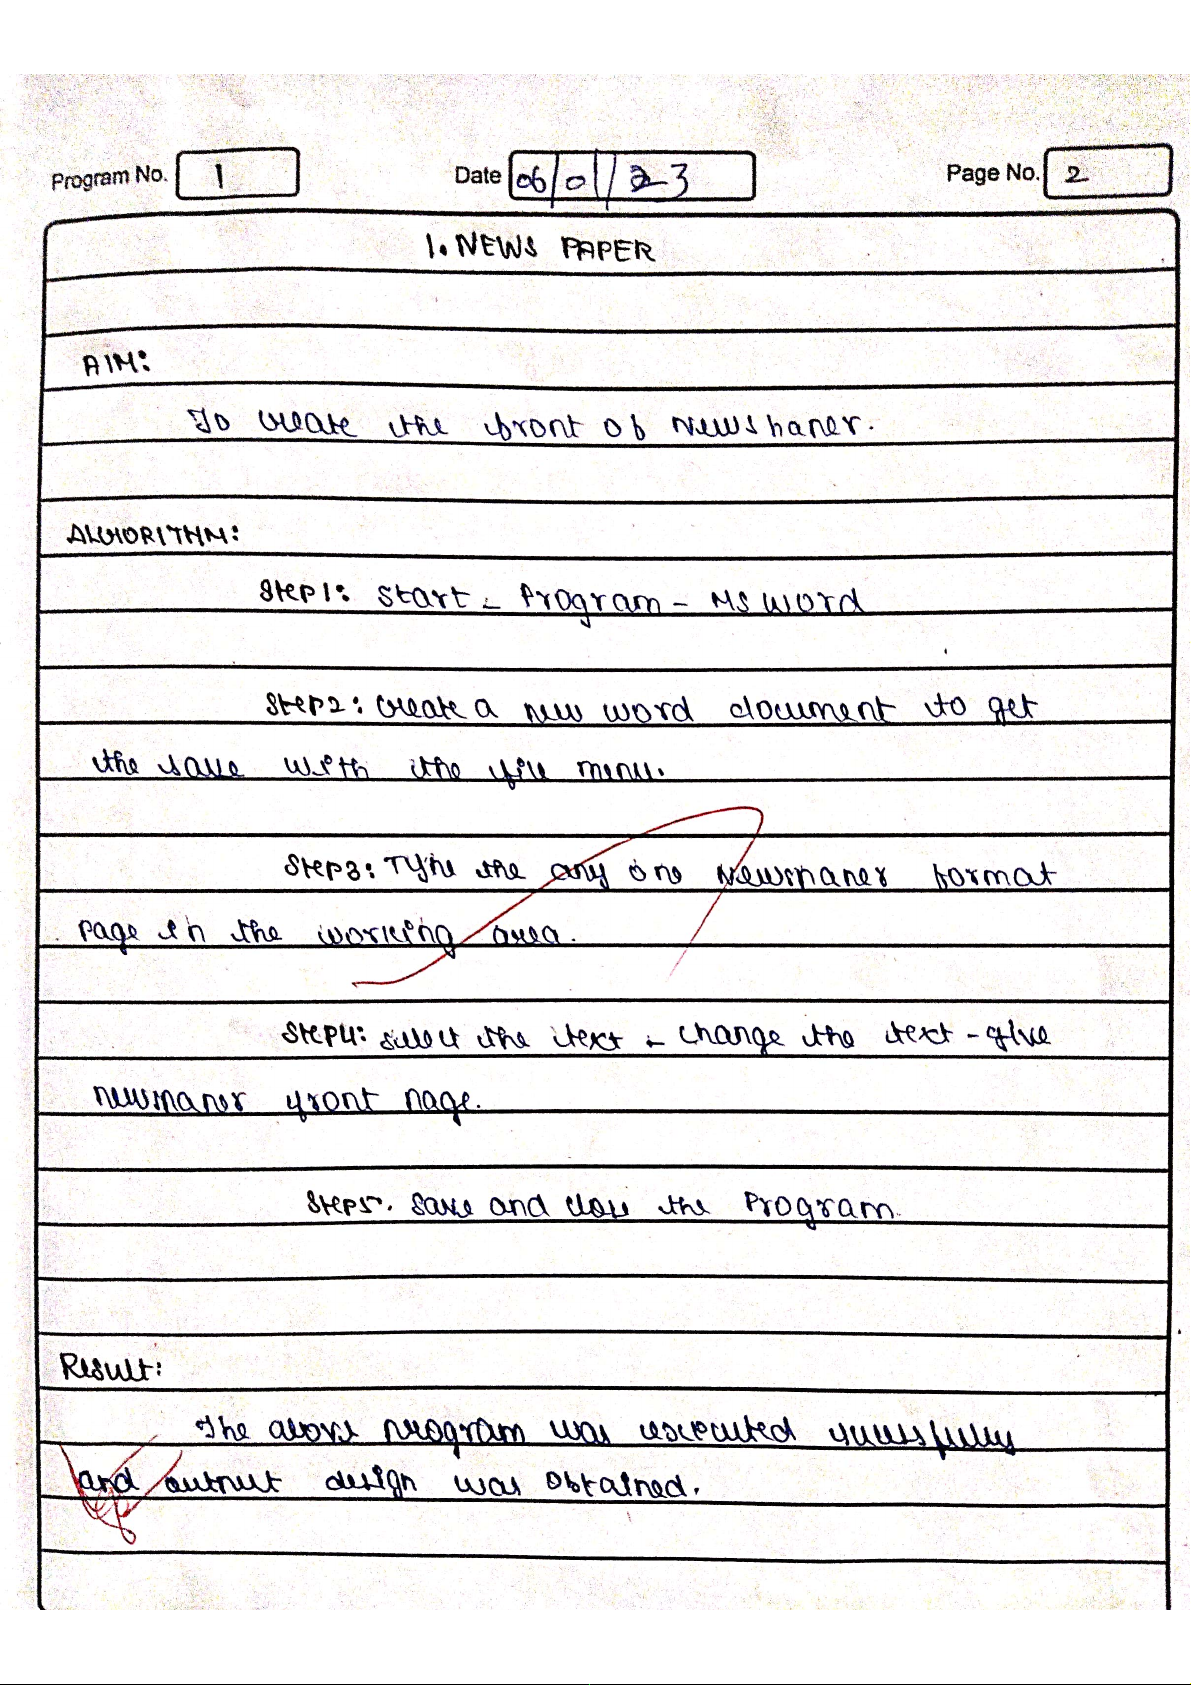 Program No. 1 Date 06/01/23 Page No. 2
1. NEWS PAPER
AIM:
To create the front of Newspaper.
ALGORITHM:
Step1: Start - Program - MS word
Step2: Create a new word document to get
the save with the file menu.
Step3: Type the any one Newspaper format
page in the working area.
Step4: Select the text - change the text - give
newspaper front page.
Step5. Save and close the Program.
Result:
The above program was executed sucessfully
and output design was obtained.